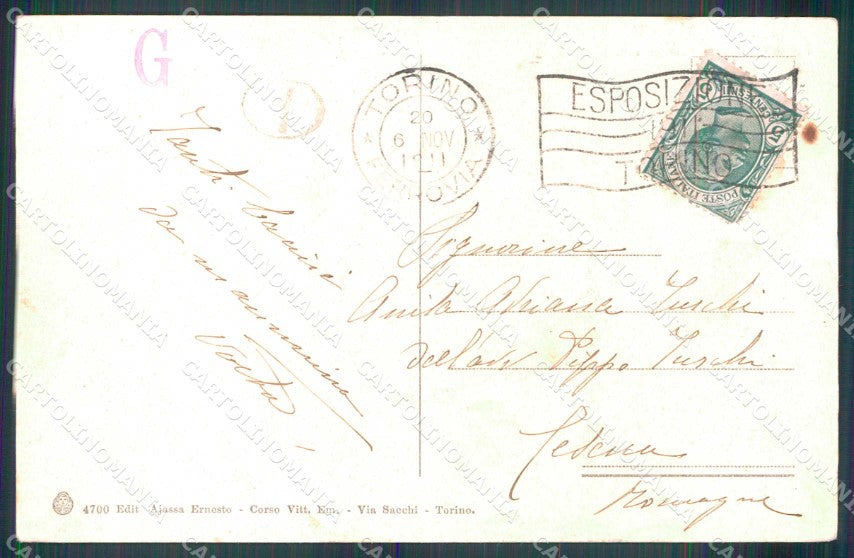 G
D
TORINO
20
6 NOV
1911
FERROVIA
ESPOSIZIONE
1911
TORINO
POSTE ITALIANE
CENTESIMI 5
Tanti bacini
da mammina
vostra
Signorine
Anita Adriana Turchi
dell'avv Pippo Turchi
Cesena
Romagna
4700 Edit Ajassa Ernesto - Corso Vitt. Em. - Via Sacchi - Torino.
CARTOLINOMANIA